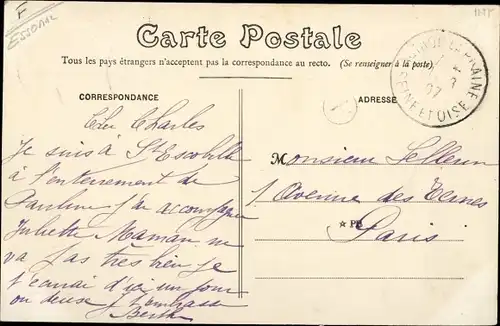 F
ESSONNE
Carte Postale
Tous les pays étrangers n'acceptent pas la correspondance au recto. (Se renseigner à la poste)
CORRESPONDANCE
ADRESSE
SEINE ET OISE
07
Cher Charles
Je suis à St Escobille
à l'enterrement de
Pauline j'ai accompagné
Juliette Maman ne
va pas très bien je
t'écrirai d'ici un jour
ou deux je t'embrasse
Berthe
Monsieur
1 Avenue des Ternes
Paris